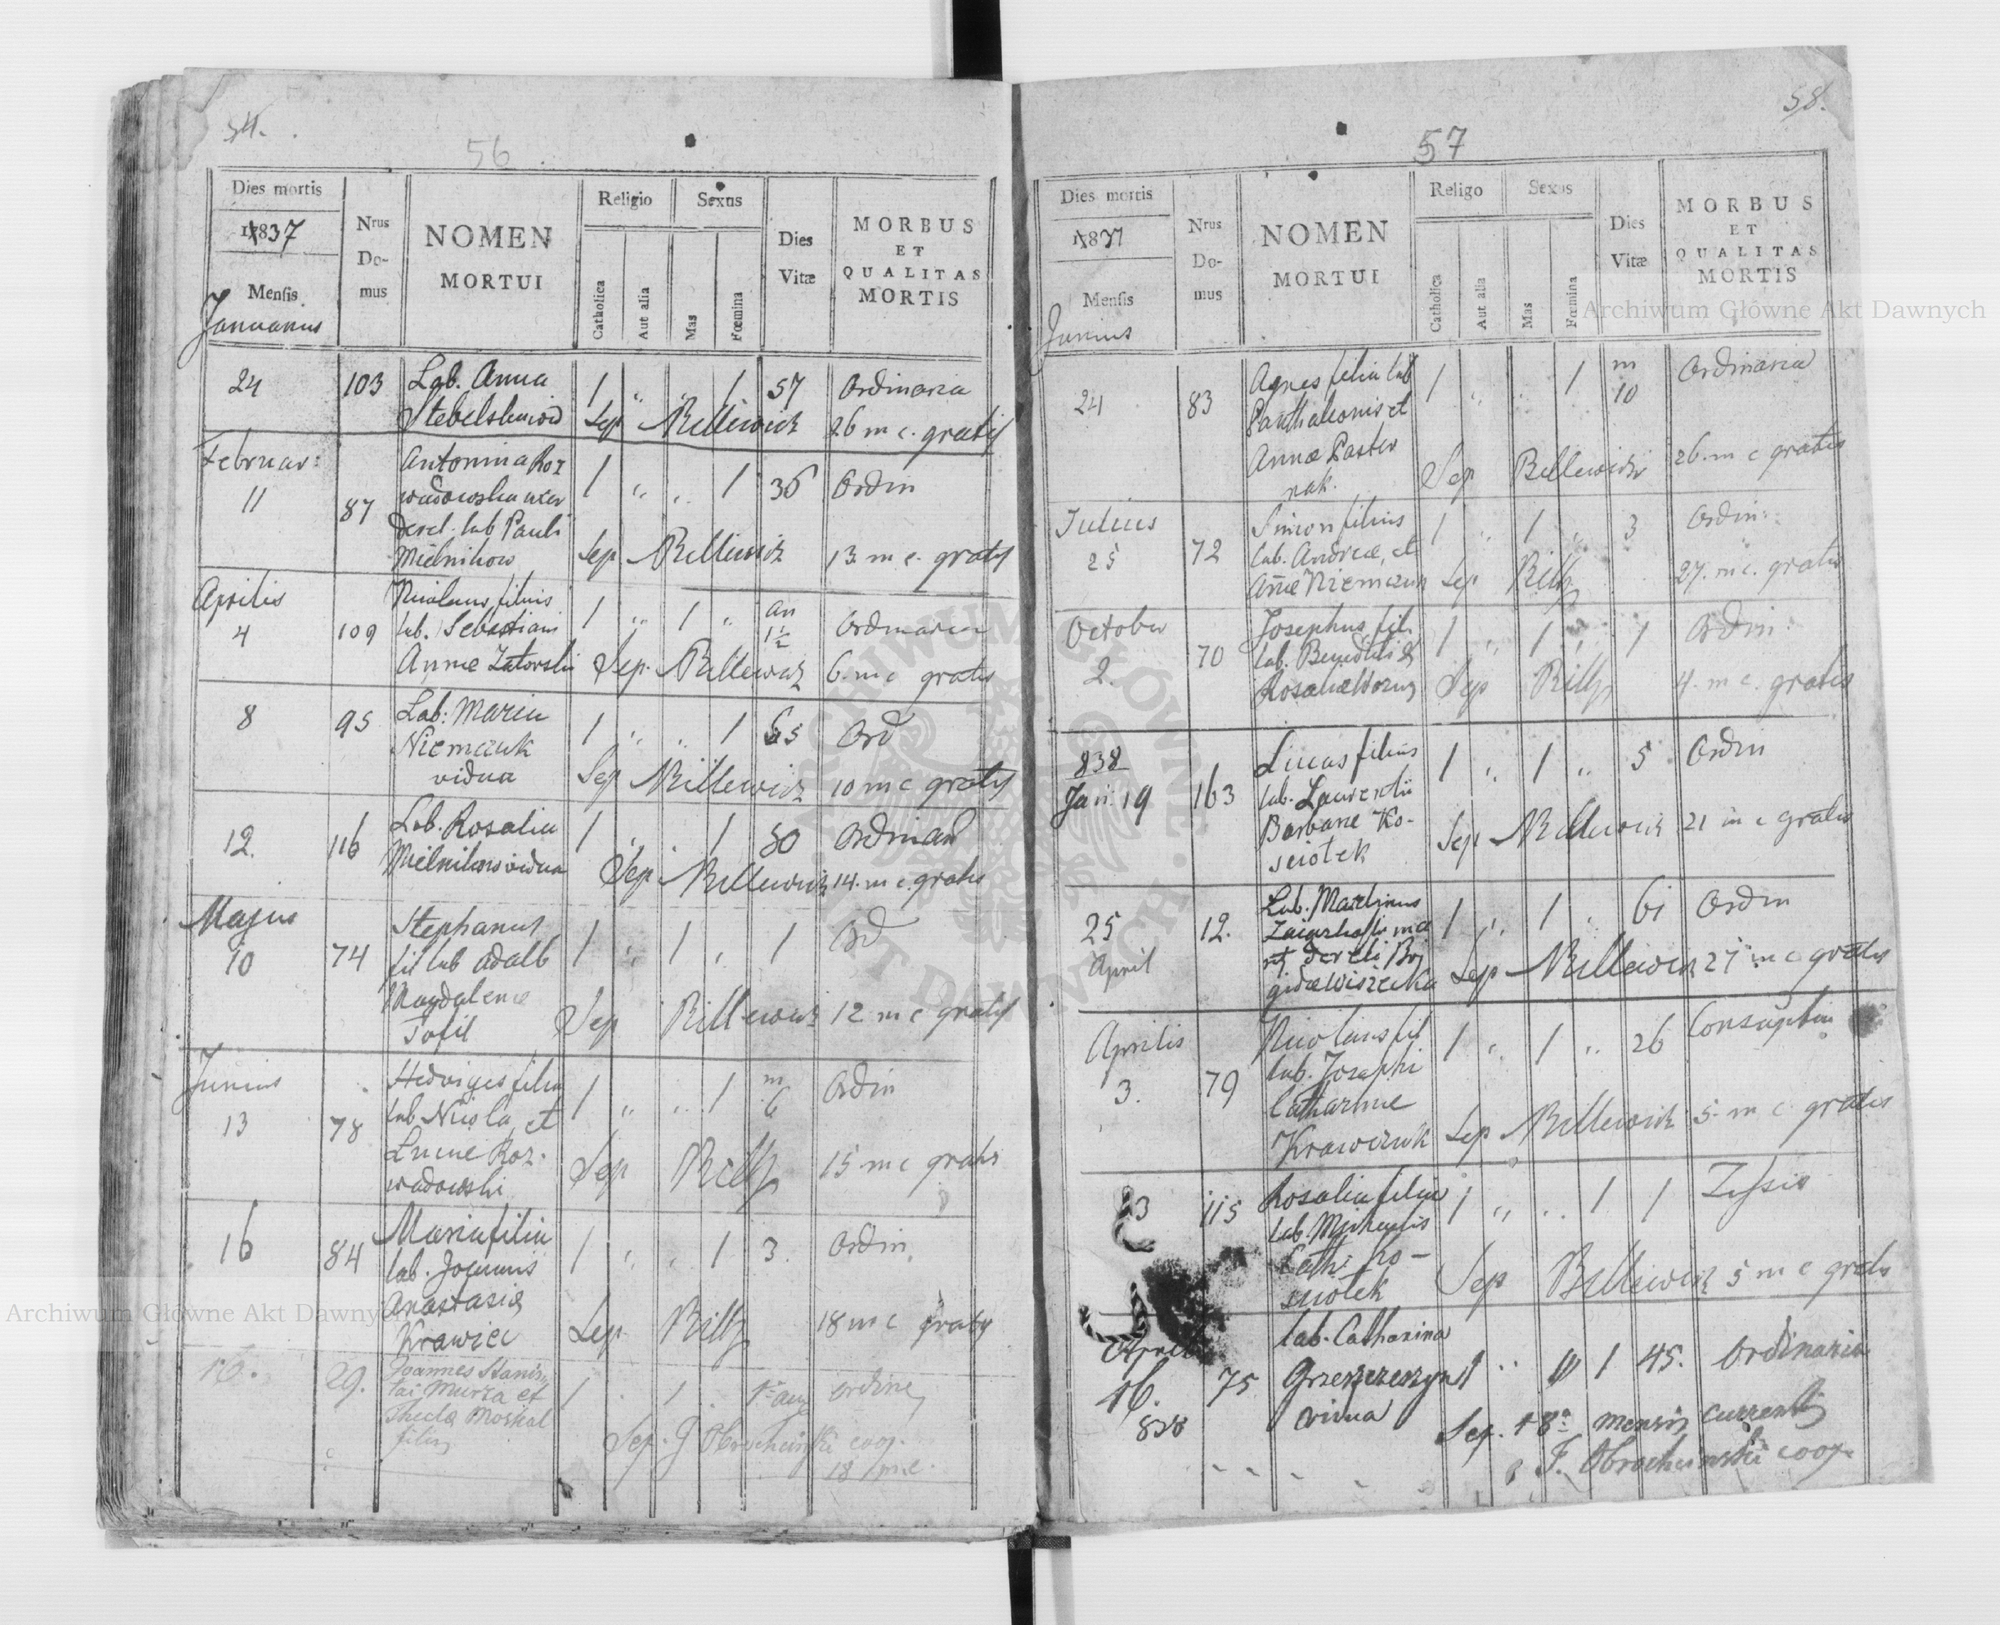 54.
56
Dies mortis
1837
Mensis
Januarius
Nrus
Do-
mus
NOMEN
MORTUI
Religio
Catholica
Aut alia
Sexus
Mas
Fœmina
Dies
Vitæ
MORBUS
ET
QUALITAS
MORTIS
24 103 Lab. Anna 1 " " 1 57 Ordinaria
Sep Rillewicz 26 m c. gratis
Februar:
11 87 Antonina Roz 1 " " 1 36 Ordin
wadowska uxor
derel. lab Pauli
Mielnikow Sep Rillewicz 13 m c. gratis
Aprilis
4 109 Nicolaus filius 1 " 1 " an 1½ Ordinaria
lab. Sebastiani
Annae Zatorski Sep. Rillewicz 6. m c gratis
8 95 Lab: Maria 1 " " 1 65 Ord
Niemczuk
vidua Sep Rillewicz 10 m c gratis
12. 116 Lab. Rosalia 1 " . 1 80
vidua Sep. Rillewicz 14. m c. gratis
Majus
10 74 Stephanus 1 " 1 " 1 Ord
fil lab Adalb
Magdalenae
Tofil Sep Rillewicz 12 m c gratis
Junius
13 78 Hedviges filia 1 " " 1 m 6 Ordin
lab Nicola, et
Luciae Roz-
wadowski Sep Rillz 15 m c gratis
16 84 Maria filia 1 " " 1 3. Ordin
lab. Joannis
Anastasiae
Krawiec Sep Rillz 18 m c gratis
16. 29. Joannes Stanis- 1 . 1 .
lai Murza et
Theclae Moskal
filius Sep. J Obrocheinski coop.
18 m c.
58.
57
Dies mortis
1837
Mensis
Junius
Nrus
Do-
mus
NOMEN
MORTUI
Religo
Catholica
Aut alia
Sexus
Mas
Fœmina
Dies
Vitæ
MORBUS
ET
QUALITAS
MORTIS
24 83 Agnes filia lab 1 " " 1 m 10 Ordinaria
Panthaleonis et
Annae Paster
nak. Sep Rillewicz 26. m c gratis
Julius
25 72 Simon filius 1 " 1 " 3 Ordin:
lab. Andreae, et
Annae Niemczuk Sep Rillz 27. m c. gratis
October
2. 70 Josephus fil. 1 " 1 " 1 Ordin:
lab. Benedicti &
Rosaliae Sep Rillz 4. m c. gratis
838
Jan. 19 163 Lucas filius 1 " 1 " 5 Ordin
lab. Laurentii
Barbarae Ko-
sciotek Sep Rillewicz 21 m c gratis
25 12. Lab. Martinus 1 " 1 . 61 Ordin
April
Sep Rillewicz 27 m c gratis
Aprilis
3. 79 Nicolaus fil 1 " 1 " 26
lab. Josephi
Catharinae
Krawczuk Sep Rillewicz 5. m c. gratis
3 115 Rosalia filia 1 " " 1 1
lab. Michaelis
Cath: Ko-
sciotek Sep Rillewicz 5 m c gratis
Aprilis
16. 75 lab. Catharina 1 " 1 45. Ordinaria
838 vidua Sep. 18a mensis currentis
F. Obrocheinski coop.
Archiwum Główne Akt Dawnych
Archiwum Główne Akt Dawnych
ARCHIWUM GŁÓWNE AKT DAWNYCH